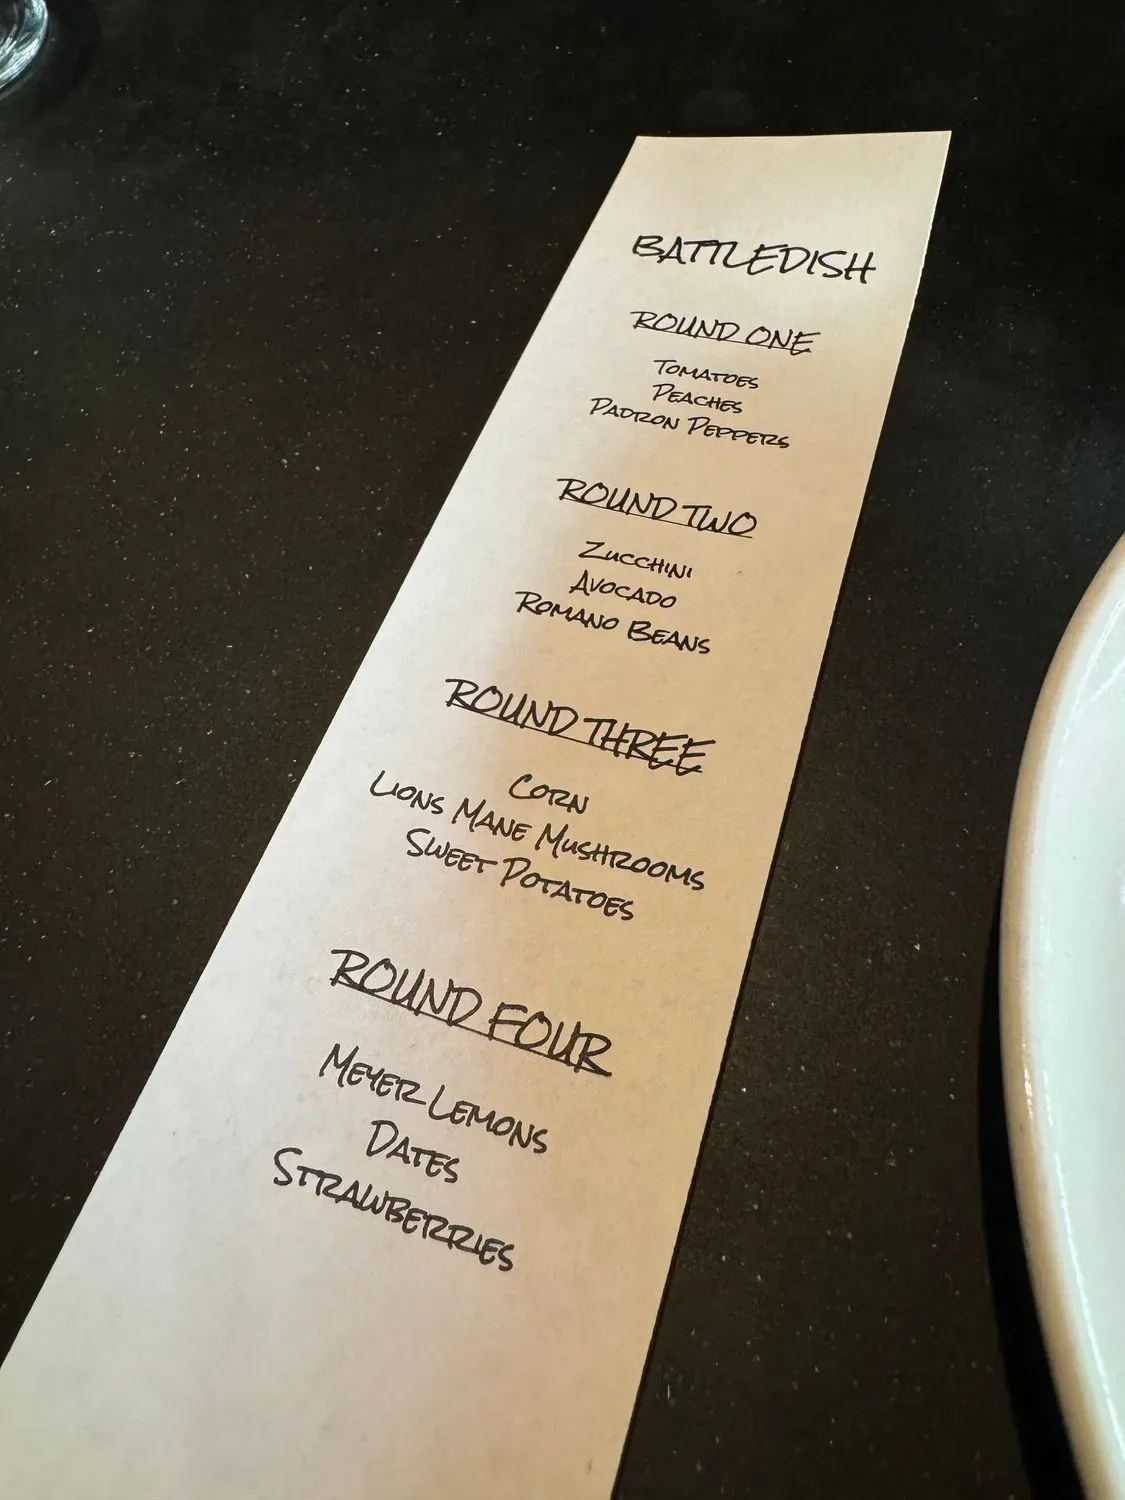 BATTLEDISH
ROUND ONE
TOMATOES
PEACHES
PADRON PEPPERS
ROUND TWO
ZUCCHINI
AVOCADO
ROMANO BEANS
ROUND THREE
CORN
LIONS MANE MUSHROOMS
SWEET POTATOES
ROUND FOUR
MEYER LEMONS
DATES
STRAWBERRIES